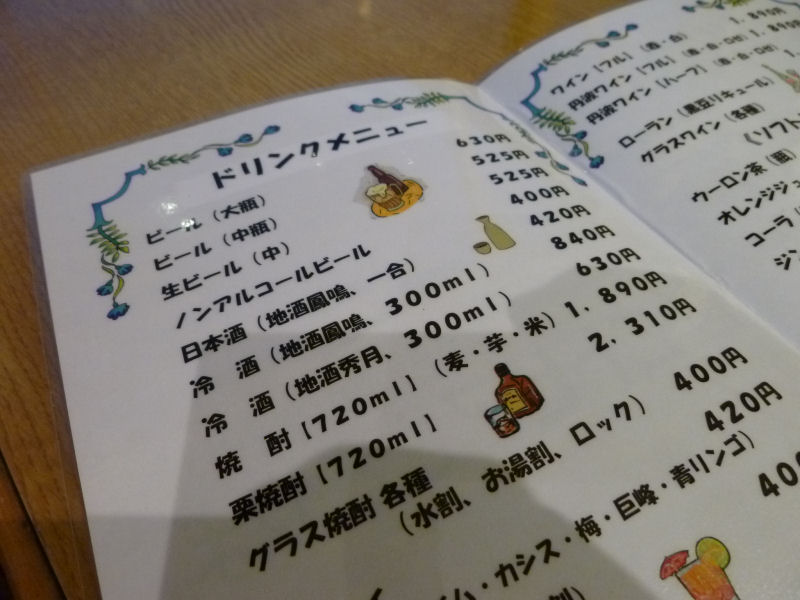 ドリンクメニュー
ビール（大瓶） 630円
ビール（中瓶） 525円
生ビール（中） 525円
ノンアルコールビール 400円
日本酒（地酒鳳鳴、一合） 420円
冷　酒（地酒鳳鳴、300ml） 840円
冷　酒（地酒秀月、300ml） 630円
焼　酎［720ml］（麦・芋・米） 1，890円
栗焼酎［720ml］ 2，310円
グラス焼酎 各種 400円
（水割、お湯割、ロック） 420円
ム・カシス・梅・巨峰・青リンゴ） 400
割）
1，890円
ワイン［フル］（赤・白） 1，890
丹波ワイン［フル］（赤・白・ロゼ） 1，
丹波ワイン［ハーフ］（赤・白・ロゼ）
ローラン（黒豆リキュール）
グラスワイン（各種）
《ソフト
ウーロン茶（瓶）
オレンジジュ
コーラ（
ジン